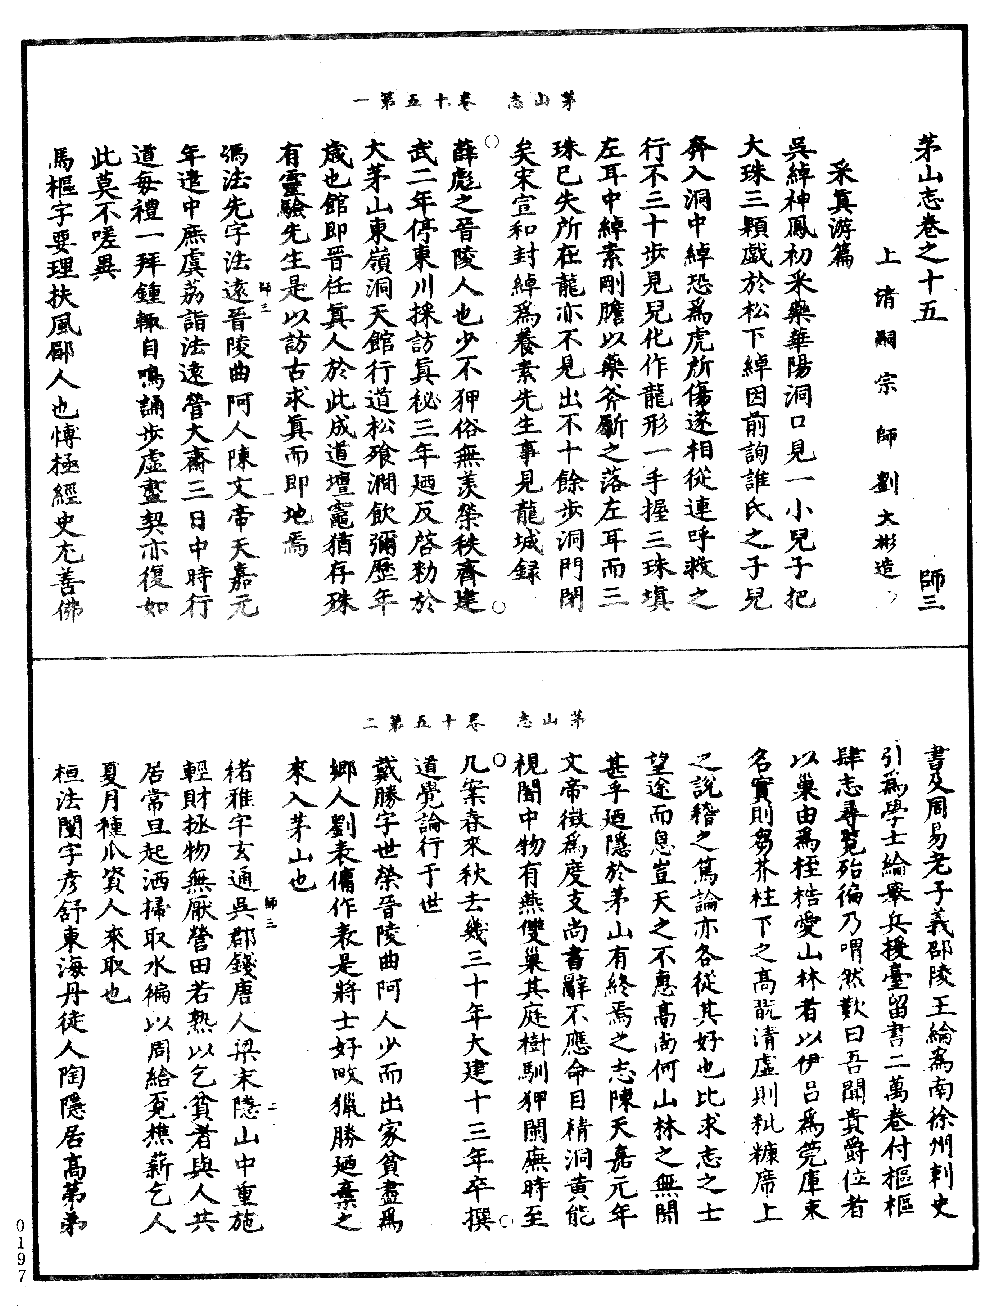 茅山志 卷十五 第一
茅山志卷之十五 師三
上清嗣宗師劉大彬造
采真游篇
吳綽神鳳初采藥華陽洞口見一小兒手把
大珠三顆戲於松下綽因前詢誰氏之子兒
奔入洞中綽恐為虎所傷遂相從連呼救之
行不三十步見兒化作龍形一手握三珠填
左耳中綽素剛膽以藥斧斸之落左耳而三
珠已失所在龍亦不見出不十餘步洞門閉
矣宋宣和封綽為養素先生事見龍城録
薛彪之晉陵人也少不狎俗無羨榮秩齊建
武二年停東川採訪真秘三年廼反啓勑於
大茅山東嶺洞天館行道松飱澗飲彌歷年
歲也館即晉任真人於此成道壇竈猶存殊
有靈驗先生是以訪古求真而即地焉
師三 一
馮法先字法遠晉陵曲阿人陳文帝天嘉元
年遣中庶虞荔詣法遠營大齋三日中時行
道每禮一拜鍾輒自鳴誦步虛盡契亦復如
此莫不嗟異
馬樞字要理扶風郿人也博極經史尤善佛
茅山志 卷十五 第二
書及周易老子義邵陵王綸為南徐州刺史
引為學士綸舉兵援臺留書二萬卷付樞樞
肆志尋覽殆徧乃喟然歎曰吾聞貴爵位者
以巢由為桎梏愛山林者以伊呂為筦庫束
名實則芻芥柱下之高翫清虛則粃糠席上
之說稽之篤論亦各從其好也比求志之士
望途而息豈天之不惠高尚何山林之無聞
甚乎廼隱於茅山有終焉之志陳天嘉元年
文帝徵為度支尚書辭不應命目精洞黃能
視闇中物有燕雙巢其庭樹馴狎閑廡時至
几案春來秋去幾三十年大建十三年卒撰
道覺論行于世
戴勝字世榮晉陵曲阿人少而出家貧盡為
鄉人劉表傭作表是將士好畋獵勝廼棄之
來入茅山也
師三 二
褚雅字玄通吳郡錢唐人梁末隱山中重施
輕財拯物無厭營田若熟以乞貧者與人共
居常旦起洒掃取水徧以周給覔樵薪乞人
夏月種瓜資人來取也
桓法闓字彥舒東海丹徒人陶隱居高第弟
0197